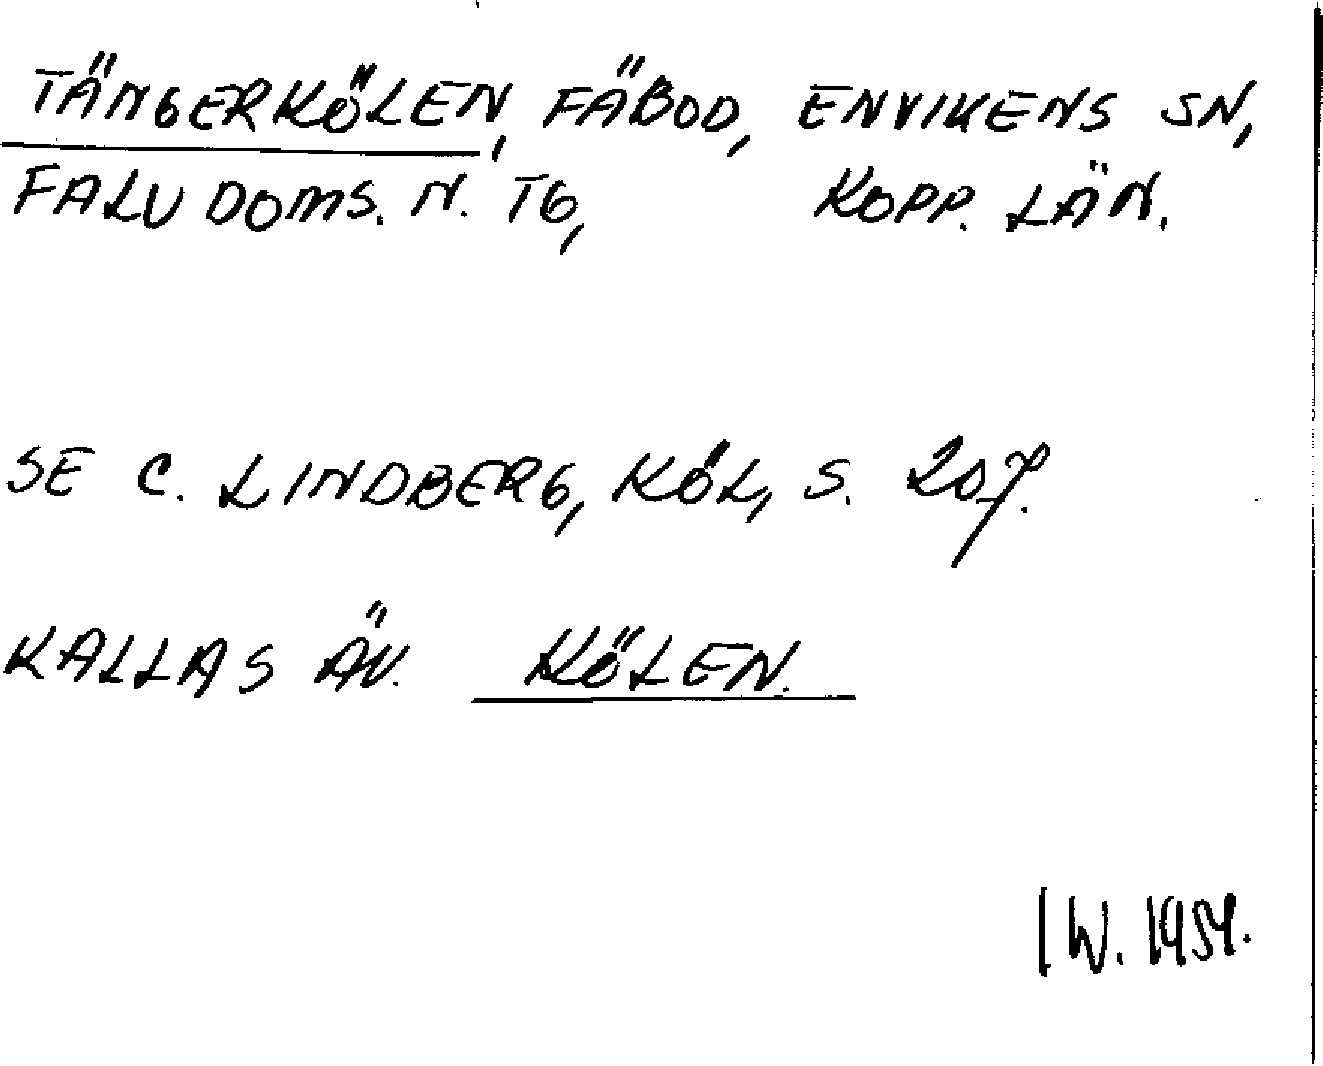 TÄNGERKÖLEN, FÄBOD, ENVIKENS SN,
FALU DOMS. N. TG, KOPP. LÄN.
SE C. LINDBERG, KÖL, S. 207.
KALLAS ÄV. KÖLEN.
I W. 1954.